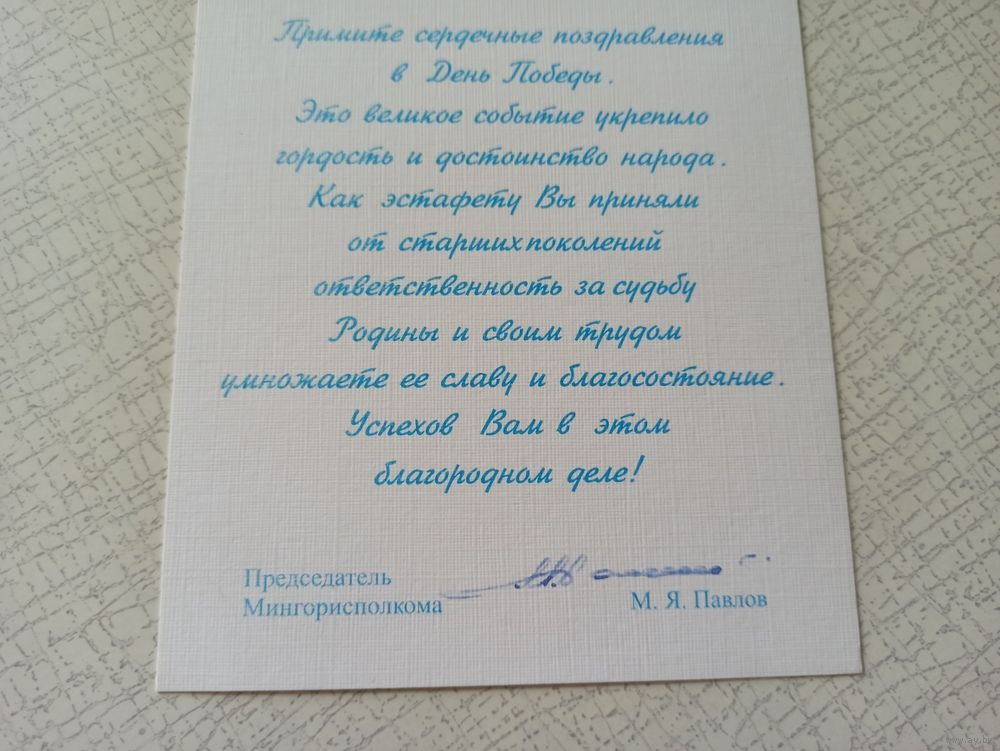 Примите сердечные поздравления
в День Победы.
Это великое событие укрепило
гордость и достоинство народа.
Как эстафету Вы приняли
от старших поколений
ответственность за судьбу
Родины и своим трудом
умножаете ее славу и благосостояние.
Успехов Вам в этом
благородном деле!
Председатель
Мингорисполкома
М. Я. Павлов